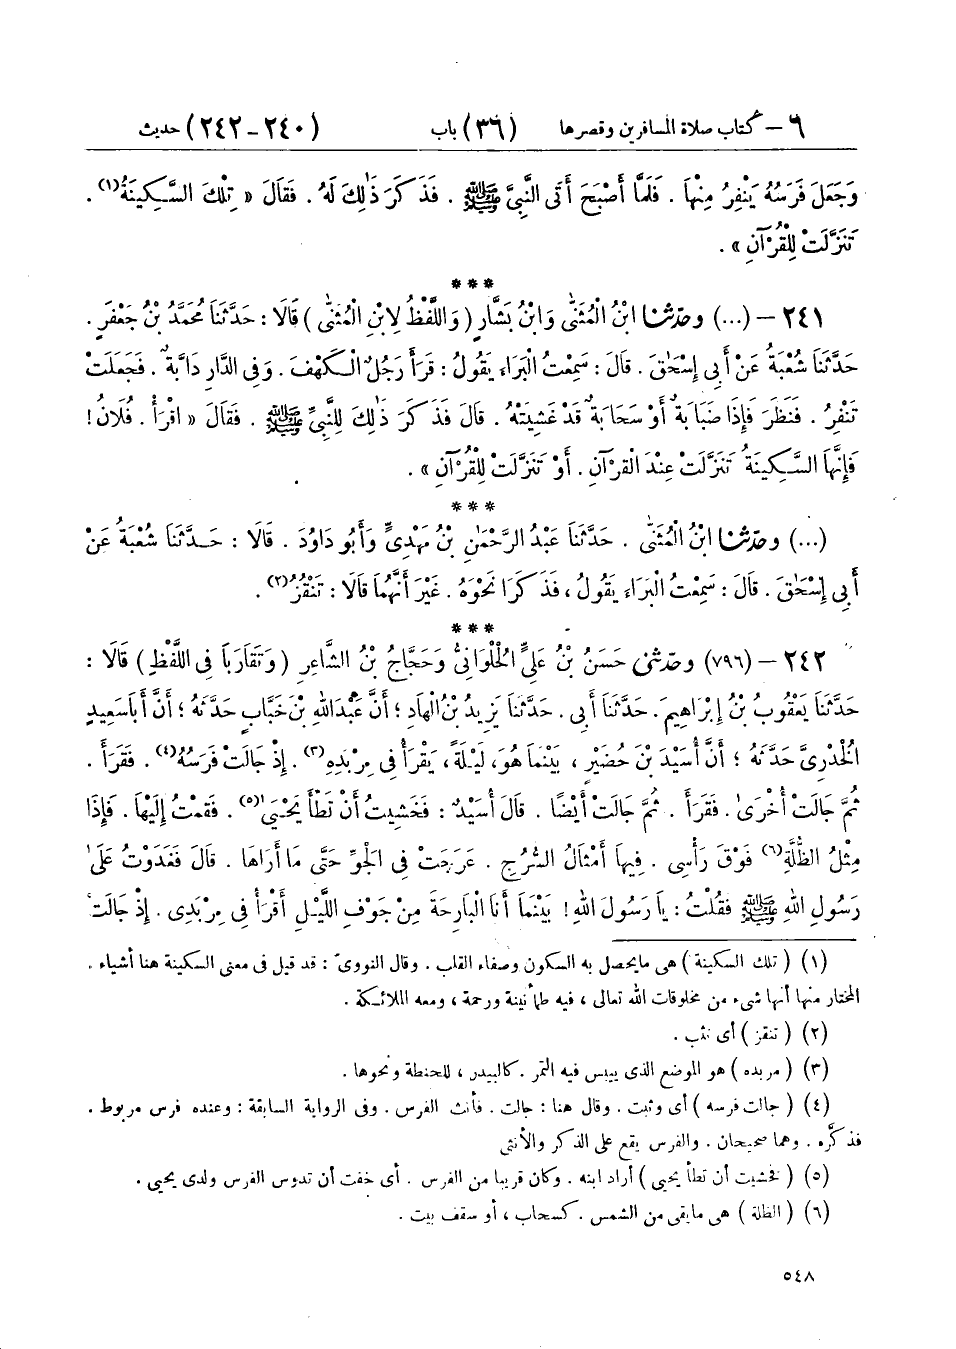 ٦ – كتاب صلاة المسافرين وقصرها (٣٦) باب (٢٤٠ – ٢٤٢) حديث
وَجَعَلَ فَرَسُهُ يَنْفِرُ مِنْهَا . فَلَمَّا أَصْبَحَ أَتَى النَّبِيَّ ﷺ . فَذَكَرَ ذَٰلِكَ لَهُ . فَقَالَ « تِلْكَ السَّكِينَةُ(١) .
تَنَزَّلَتْ لِلْقُرْآنِ » .
***
٢٤١ – (...) وحدّثنا ابْنُ الْمُثَنَّىٰ وَابْنُ بَشَّارٍ ( وَاللَّفْظُ لِابْنِ الْمُثَنَّىٰ ) قَالَا : حَدَّثَنَا مُحَمَّدُ بْنُ جَعْفَرٍ .
حَدَّثَنَا شُعْبَةُ عَنْ أَبِي إِسْحَٰقَ . قَالَ : سَمِعْتُ الْبَرَاءَ يَقُولُ : قَرَأَ رَجُلٌ الْكَهْفَ . وَفِي الدَّارِ دَابَّةٌ . فَجَعَلَتْ
تَنْفِرُ . فَنَظَرَ فَإِذَا ضَبَابَةٌ أَوْ سَحَابَةٌ قَدْ غَشِيَتْهُ . قَالَ فَذَكَرَ ذَٰلِكَ لِلنَّبِيِّ ﷺ . فَقَالَ « اقْرَأْ . فُلَانُ !
فَإِنَّهَا السَّكِينَةُ تَنَزَّلَتْ عِنْدَ الْقُرْآنِ . أَوْ تَنَزَّلَتْ لِلْقُرْآنِ » .
***
(...) وحدّثنا ابْنُ الْمُثَنَّىٰ . حَدَّثَنَا عَبْدُ الرَّحْمَٰنِ بْنُ مَهْدِيٍّ وَأَبُو دَاوُدَ . قَالَا : حَدَّثَنَا شُعْبَةُ عَنْ
أَبِي إِسْحَٰقَ . قَالَ : سَمِعْتُ الْبَرَاءَ يَقُولُ ، فَذَكَرَا نَحْوَهُ . غَيْرَ أَنَّهُمَا قَالَا : تَنْقُزُ(٢) .
***
٢٤٢ – (٧٩٦) وحدّثني حَسَنُ بْنُ عَلِيٍّ الْحُلْوَانِيُّ وَحَجَّاجُ بْنُ الشَّاعِرِ ( وَتَقَارَبَا فِي اللَّفْظِ ) قَالَا :
حَدَّثَنَا يَعْقُوبُ بْنُ إِبْرَاهِيمَ . حَدَّثَنَا أَبِي . حَدَّثَنَا يَزِيدُ بْنُ الْهَادِ ؛ أَنَّ عَبْدَ اللهِ بْنَ خَبَّابٍ حَدَّثَهُ ؛ أَنَّ أَبَا سَعِيدٍ
الْخُدْرِيَّ حَدَّثَهُ ؛ أَنَّ أُسَيْدَ بْنَ حُضَيْرٍ ، بَيْنَمَا هُوَ ، لَيْلَةً ، يَقْرَأُ فِي مِرْبَدِهِ(٣) . إِذْ جَالَتْ فَرَسُهُ(٤) . فَقَرَأَ .
ثُمَّ جَالَتْ أُخْرَىٰ . فَقَرَأَ . ثُمَّ جَالَتْ أَيْضًا . قَالَ أُسَيْدٌ : فَخَشِيتُ أَنْ تَطَأَ يَحْيَىٰ(٥) . فَقُمْتُ إِلَيْهَا . فَإِذَا
مِثْلُ الظُّلَّةِ(٦) فَوْقَ رَأْسِي . فِيهَا أَمْثَالُ السُّرُجِ . عَرَجَتْ فِي الْجَوِّ حَتَّى مَا أَرَاهَا . قَالَ فَغَدَوْتُ عَلَىٰ
رَسُولِ اللهِ ﷺ فَقُلْتُ : يَا رَسُولَ اللهِ ! بَيْنَمَا أَنَا الْبَارِحَةَ مِنْ جَوْفِ اللَّيْلِ أَقْرَأُ فِي مِرْبَدِي . إِذْ جَالَتْ
(١) ( تلك السكينة ) هى مايحصل به السكون وصفاء القلب . وقال النووىّ : قد قيل فى معنى السكينة هنا أشياء .
المختار منها أنها شىء من مخلوقات الله تعالى ، فيه طمأنينة ورحمة ، ومعه الملائكة .
(٢) ( تنقز ) أى تثب .
(٣) ( مربده ) هو الموضع الذى ييبس فيه التمر . كالبيدر ، للحنطة ونحوها .
(٤) ( جالت فرسه ) أى وثبت . وقال هنا : جالت . فأنث الفرس . وفى الرواية السابقة : وعنده فرس مربوط .
فذكّره . وهما صحيحان . والفرس يقع على الذكر والأنثى
(٥) ( فخشيت أن تطأ يحيى ) أراد ابنه . وكان قريبا من الفرس . أى خفت أن تدوس الفرس ولدى يحيى .
(٦) ( الظلة ) هى مايقى من الشمس . كسحاب ، أو سقف بيت .
٥٤٨